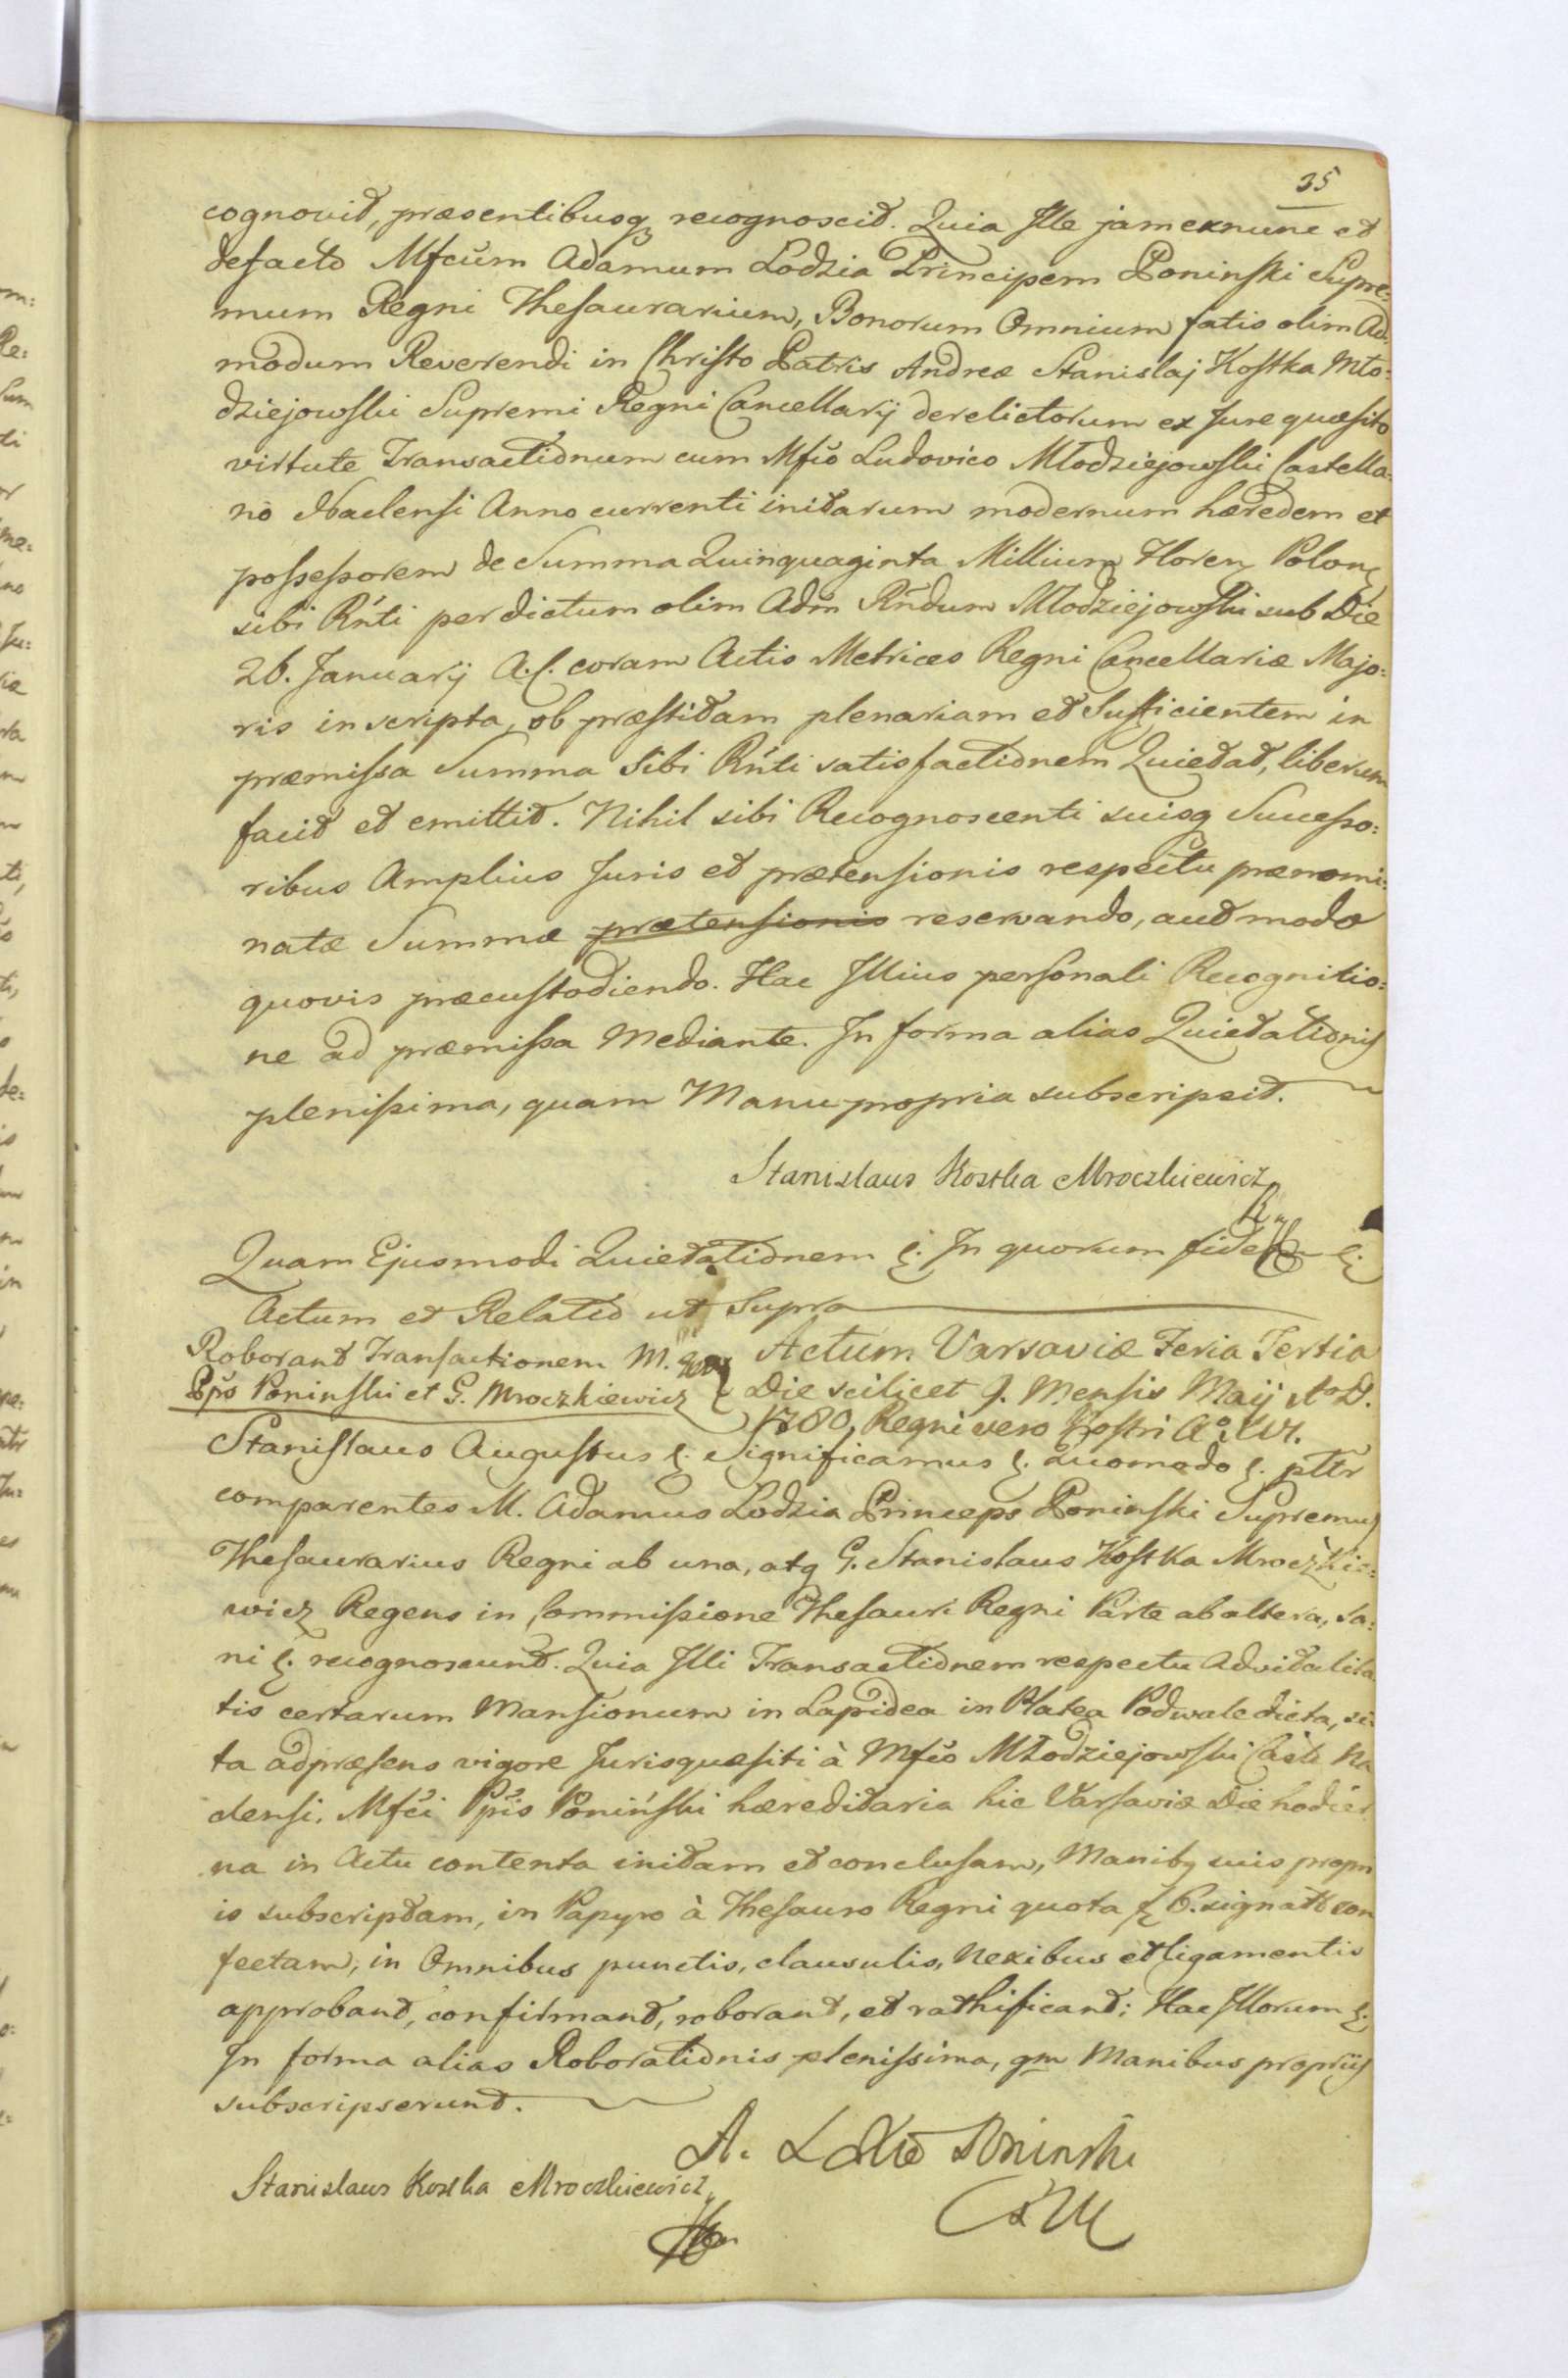 35
cognovit, præsentibusq recognoscit. Quia Ille jam exnunc et
defacto Mfcum Adamum Lodzia Principem Poninski Supre:
mum Regni Thesaurarium, Bonorum Omnium fatis olim Ad:
modum Reverendi in Christo Patris Andreæ Stanislaj Kostka Mło:
dziejowski Supremi Regni Cancellarij derelictorum ex Jure quæsito
virtute Transactionum cum Mfco Ludovico Młodziejowski Castella:
no Naclensi Anno currenti initarum modernum hæredem et
possessorem de Summa Quinquaginta Millium Floren Polon
sibi Rnti per dictum olim Adm Rndum Młodziejowski sub Die
26. Januarij A.C. coram Actis Metrices Regni Cancellariæ Majo:
ris inscripta, ob præstitam plenariam et Sufficientem in
præmissa Summa sibi Rnti satisfactionem Quietat, liberum
facit et emittit. Nihil sibi Recognoscenti suisq Successo:
ribus Amplius Juris et prætensionis respectu prænomi:
natæ Summæ prætensionis reservando, aut modo
quovis præcustodiendo. Hac Illius personali Recognitio:
ne ad præmissa Mediante. In forma alias Quietationis
plenissima, quam Manu propria subscripsit.
Stanislaus Kostka Mroczkiewicz
Quam Ejusmodi Quietationem &. In quorum fidem &.
Actum et Relatio ut Supra
Roborant Transactionem M.
Ppś Poninski et G. Mroczkiewicz
Actum Varsaviæ Feria Tertia
Die scilicet 9. Mensis Maij AoD.
1780, Regni vero Nostri Ao XVI.
Stanislaus Augustus &. Significamus &. Quomodo &. pttr
comparentes M. Adamus Lodzia Princeps Poninski Supremus
Thesaurarius Regni ab una, atq G. Stanislaus Kostka Mroczkie:
wicz Regens in Commissione Thesauri Regni Parte ab altera, Sa:
ni &. recognoscunt. Quia Illi Transactionem respectu Advitalita
tis certarum Mansionum in Lapidea in Platea Podwale dicta, si
ta adpræsens vigore Jurisquæsiti à Mfco Młodziejowski Castl Na
clensi, Mfci Ppis Poniński hæreditaria hic Varsaviæ Die hodier
na in Actu contenta initam et conclusam, Manibq suis propri
is subscriptam, in Papyro à Thesauro Regni quota 6. signatt con
fectam, in Omnibus punctis, clausulis, Nexibus et ligamentis
approbant, confirmant, roborant, et rathificant: Hac Illorum &.
In forma alias Roborationis plenissima, qm Manibus propriis
subscripserunt.
A. Lodzia Poninski
Stanislaus Kostka Mroczkiewicz